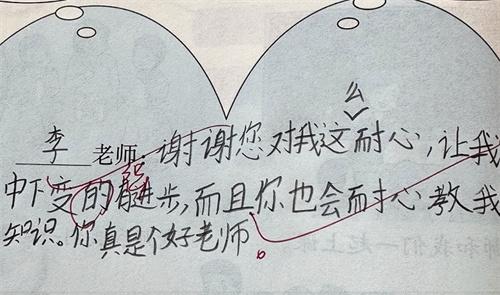 么
李老师:谢谢您对我这耐心,让我
中下变的进步,而且你也会耐心教我
知识。你真是个好老师。